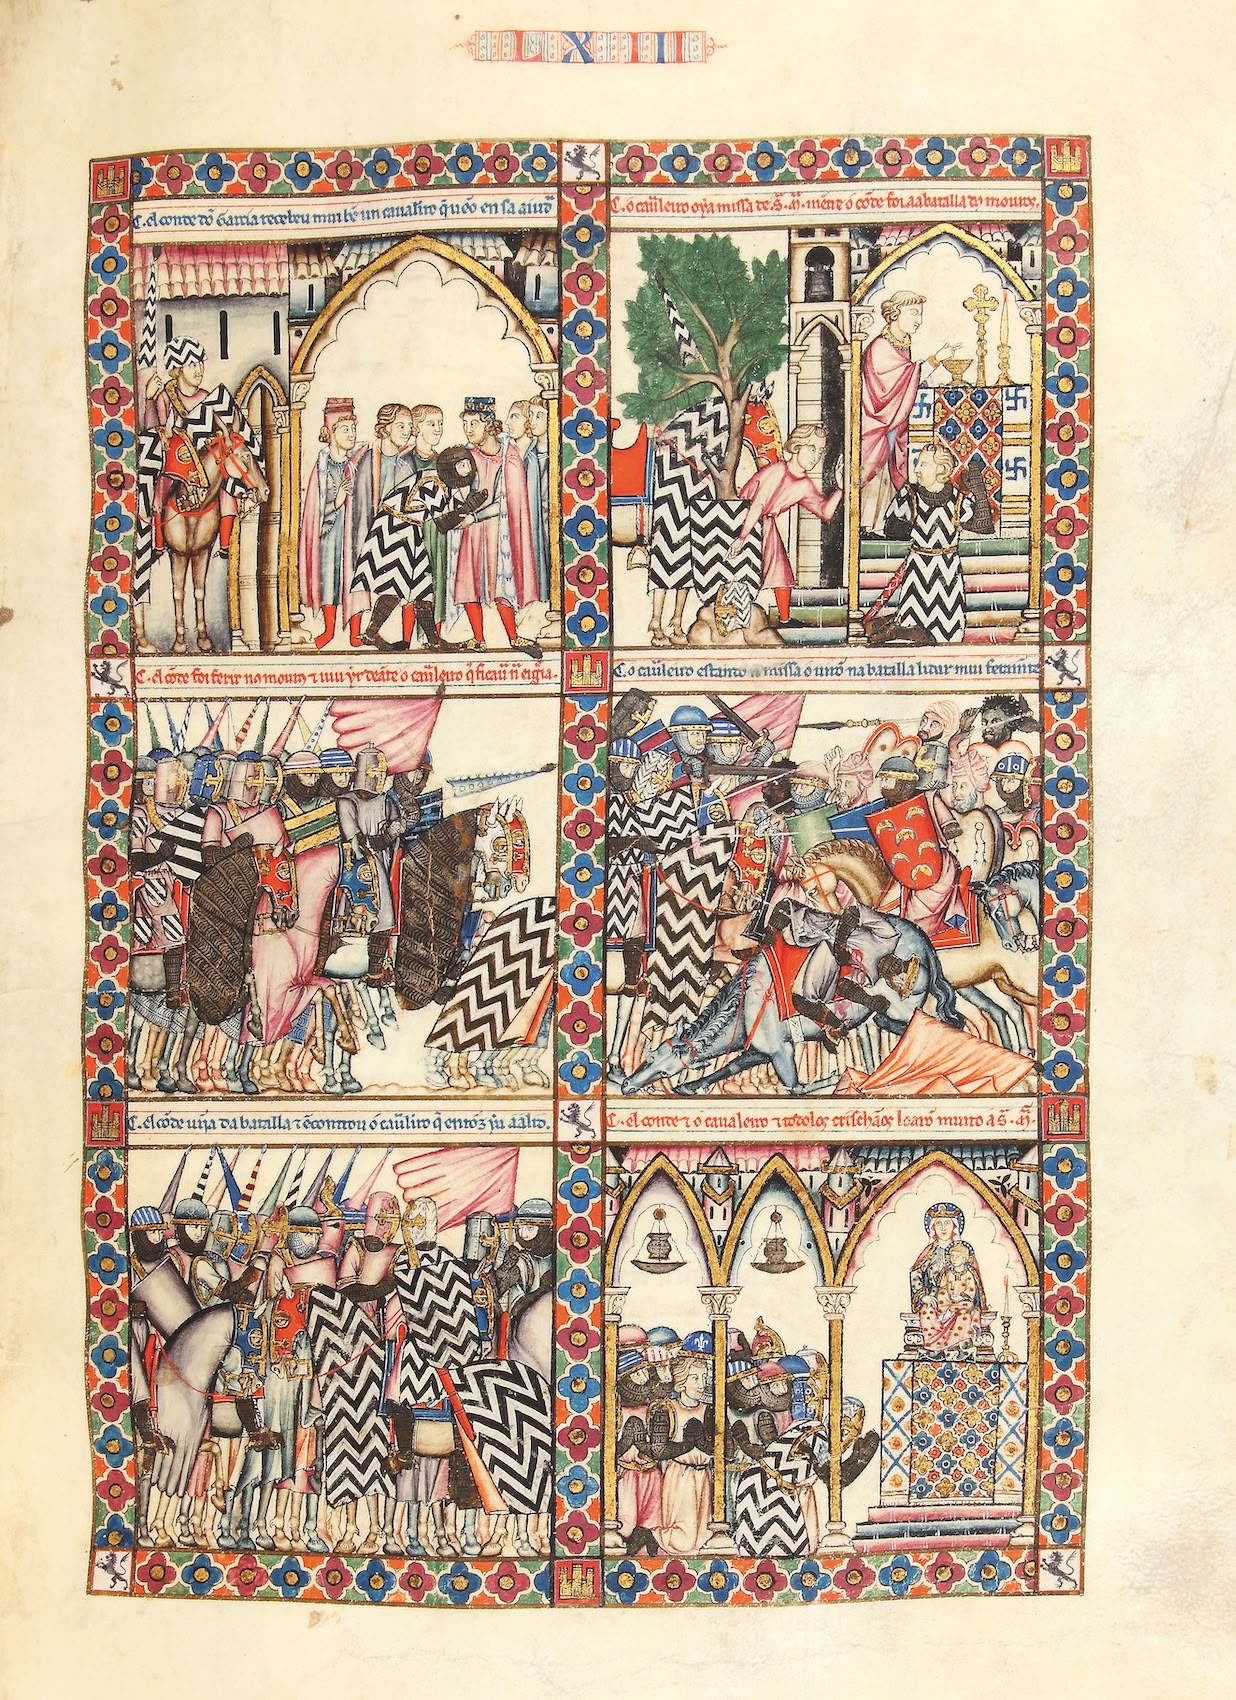 LXIII
C. el conde dō Garcia recebeu mui bē un cavaleiro q̄ vēo en sa aiud̄a
C. o caūleiro oya missa de S. M. mentre o cōde foi aa batalla dos mouros.
C. el cōde foi ferir nos mouros ⁊ viu yr deāte o caūleiro q̄ ficau na eigr̄ia.
C. o caūleiro estando a missa o virō na batalla lidar mui feram̄te
C. el cōde vijna da batalla ⁊ ēcontrou o caūleiro q̄
C. el conde ⁊ o cavaleiro ⁊ todolos crischāos loarō muito a S. M.